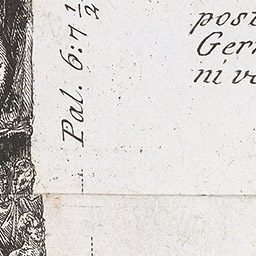 Pal. 6:7 1/2
post
Ger
ni v